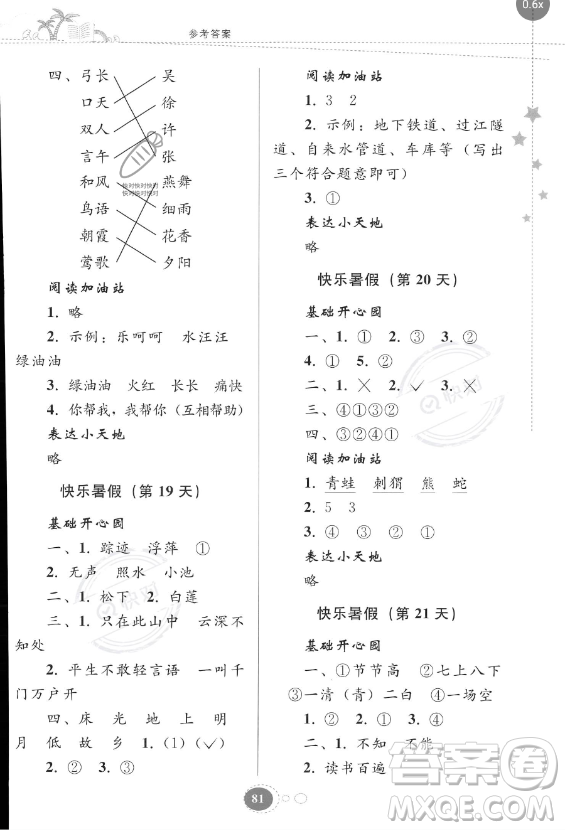 参考答案
0.6x
四、弓长 吴
口天 徐
双人 许
言午 张
和风 燕舞
鸟语 细雨
朝霞 花香
莺歌 夕阳
阅读加油站
1. 略
2. 示例：乐呵呵 水汪汪
绿油油
3. 绿油油 火红 长长 痛快
4. 你帮我，我帮你（互相帮助）
表达小天地
略
快乐暑假（第 19 天）
基础开心园
一、1. 踪迹 浮萍 ①
2. 无声 照水 小池
二、1. 松下 2. 白莲
三、1. 只在此山中 云深不
知处
2. 平生不敢轻言语 一叫千
门万户开
四、床 光 地 上 明
月 低 故 乡 1.（1）（✓）
2. ② 3. ③
阅读加油站
1. 3 2
2. 示例：地下铁道、过江隧
道、自来水管道、车库等（写出
三个符合题意即可）
3. ①
表达小天地
略
快乐暑假（第 20 天）
基础开心园
一、1. ① 2. ③ 3. ②
4. ① 5. ②
二、1. ✕ 2. ✕ 3. ✓
三、④①③②
四、③④①②
阅读加油站
1. 青蛙 刺猬 熊 蛇
2. 5 3
表达小天地
略
快乐暑假（第 21 天）
基础开心园
一、①节节高 ②七上八下
③一清（青）二白 ④一场空
2. ① 3. ④
二、1. 不知 不能
2. 读书百遍
81
快对快对快对
快对快对快对
快对
快对
答案圈
MXQE.COM